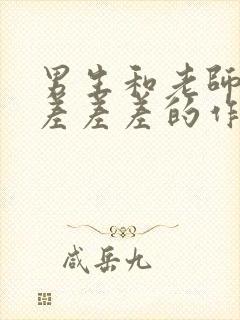 男生和老师
差差差的作
咸岳九